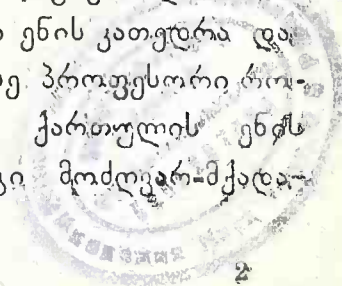 ენის კათედრა და
პროფესორი რო-
ქართულის ენის
მოძღვარ-მქადა-
2